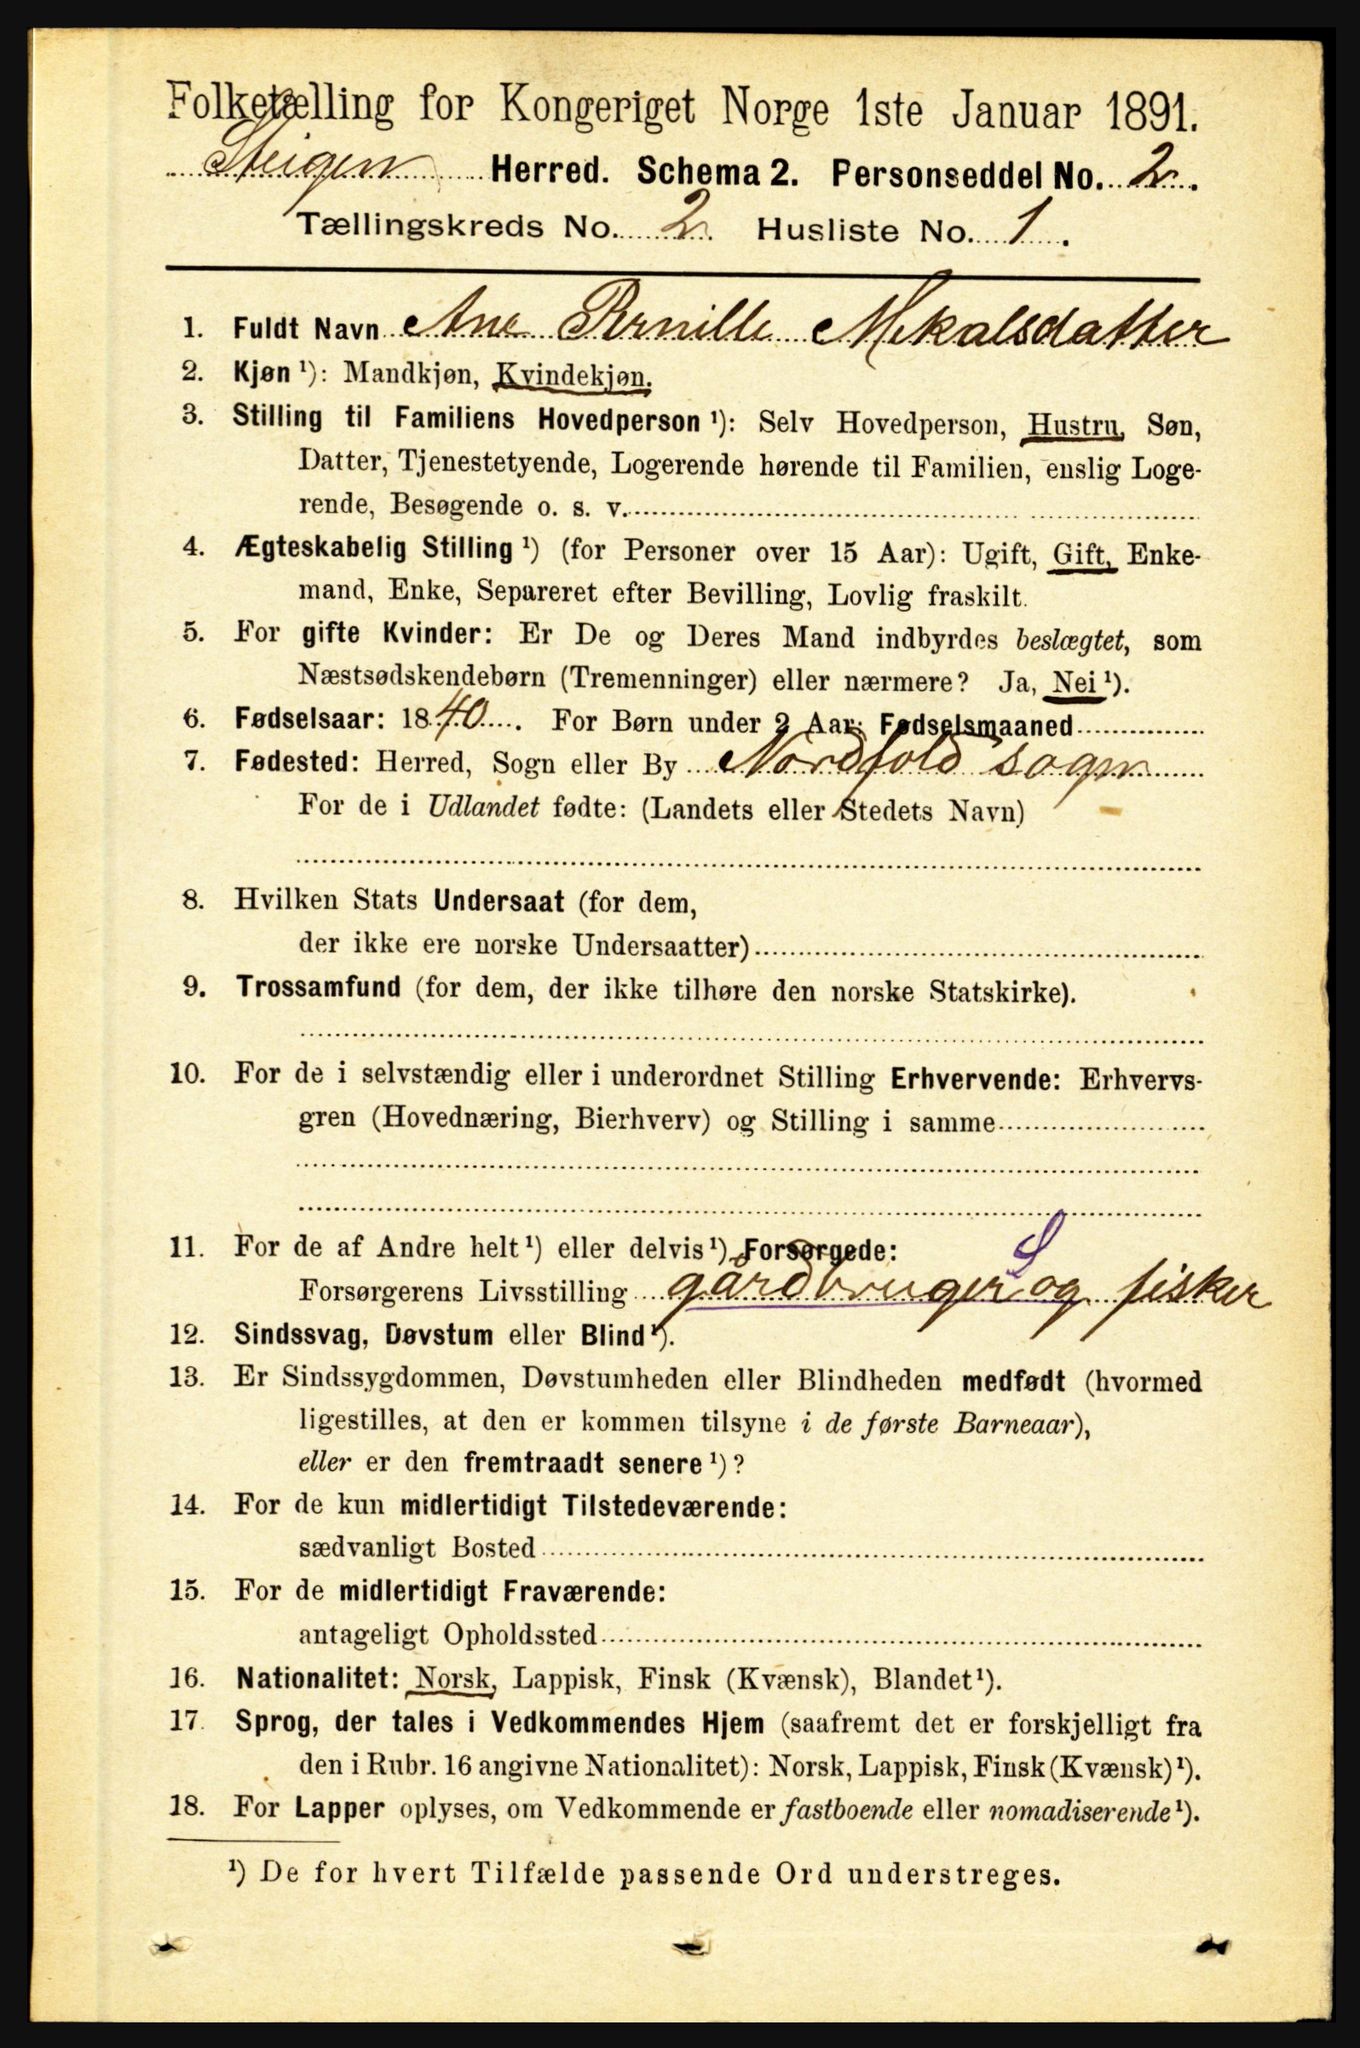 Folketælling for Kongeriget Norge 1ste Januar 1891.
Steigen Herred. Schema 2. Personseddel No. 2.
Tællingskreds No. 2 Husliste No. 1.
1. Fuldt Navn Ane Pernille Mekalsdatter
2. Kjøn ¹): Mandkjøn, Kvindekjøn.
3. Stilling til Familiens Hovedperson ¹): Selv Hovedperson, Hustru, Søn,
Datter, Tjenestetyende, Logerende hørende til Familien, enslig Loge-
rende, Besøgende o. s. v.
4. Ægteskabelig Stilling ¹) (for Personer over 15 Aar): Ugift, Gift, Enke-
mand, Enke, Separeret efter Bevilling, Lovlig fraskilt.
5. For gifte Kvinder: Er De og Deres Mand indbyrdes beslægtet, som
Næstsødskendebørn (Tremenninger) eller nærmere? Ja, Nei ¹).
6. Fødselsaar: 1840. For Børn under 2 Aar: Fødselsmaaned
7. Fødested: Herred, Sogn eller By Nordfold sogn
For de i Udlandet fødte: (Landets eller Stedets Navn)
8. Hvilken Stats Undersaat (for dem,
der ikke ere norske Undersaatter)
9. Trossamfund (for dem, der ikke tilhøre den norske Statskirke).
10. For de i selvstændig eller i underordnet Stilling Erhvervende: Erhvervs-
gren (Hovednæring, Bierhverv) og Stilling i samme
11. For de af Andre helt ¹) eller delvis ¹) Forsørgede:
Forsørgerens Livsstilling gårdbruger og fisker
12. Sindssvag, Døvstum eller Blind ¹).
13. Er Sindssygdommen, Døvstumheden eller Blindheden medfødt (hvormed
ligestilles, at den er kommen tilsyne i de første Barneaar),
eller er den fremtraadt senere ¹)?
14. For de kun midlertidigt Tilstedeværende:
sædvanligt Bosted
15. For de midlertidigt Fraværende:
antageligt Opholdssted
16. Nationalitet: Norsk, Lappisk, Finsk (Kvænsk), Blandet ¹).
17. Sprog, der tales i Vedkommendes Hjem (saafremt det er forskjelligt fra
den i Rubr. 16 angivne Nationalitet): Norsk, Lappisk, Finsk (Kvænsk) ¹).
18. For Lapper oplyses, om Vedkommende er fastboende eller nomadiserende ¹).
¹) De for hvert Tilfælde passende Ord understreges.